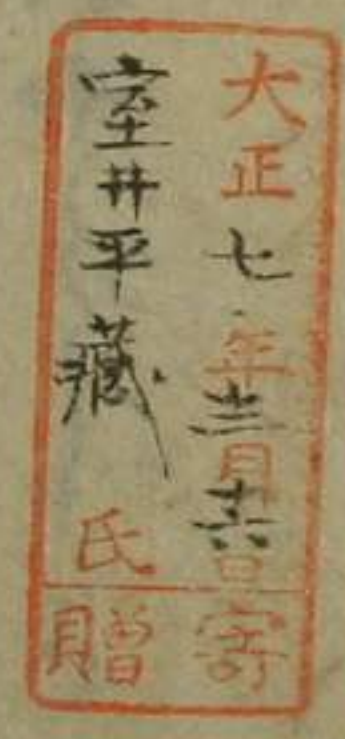 大正七年三月十六日寄
室井平蔵氏贈